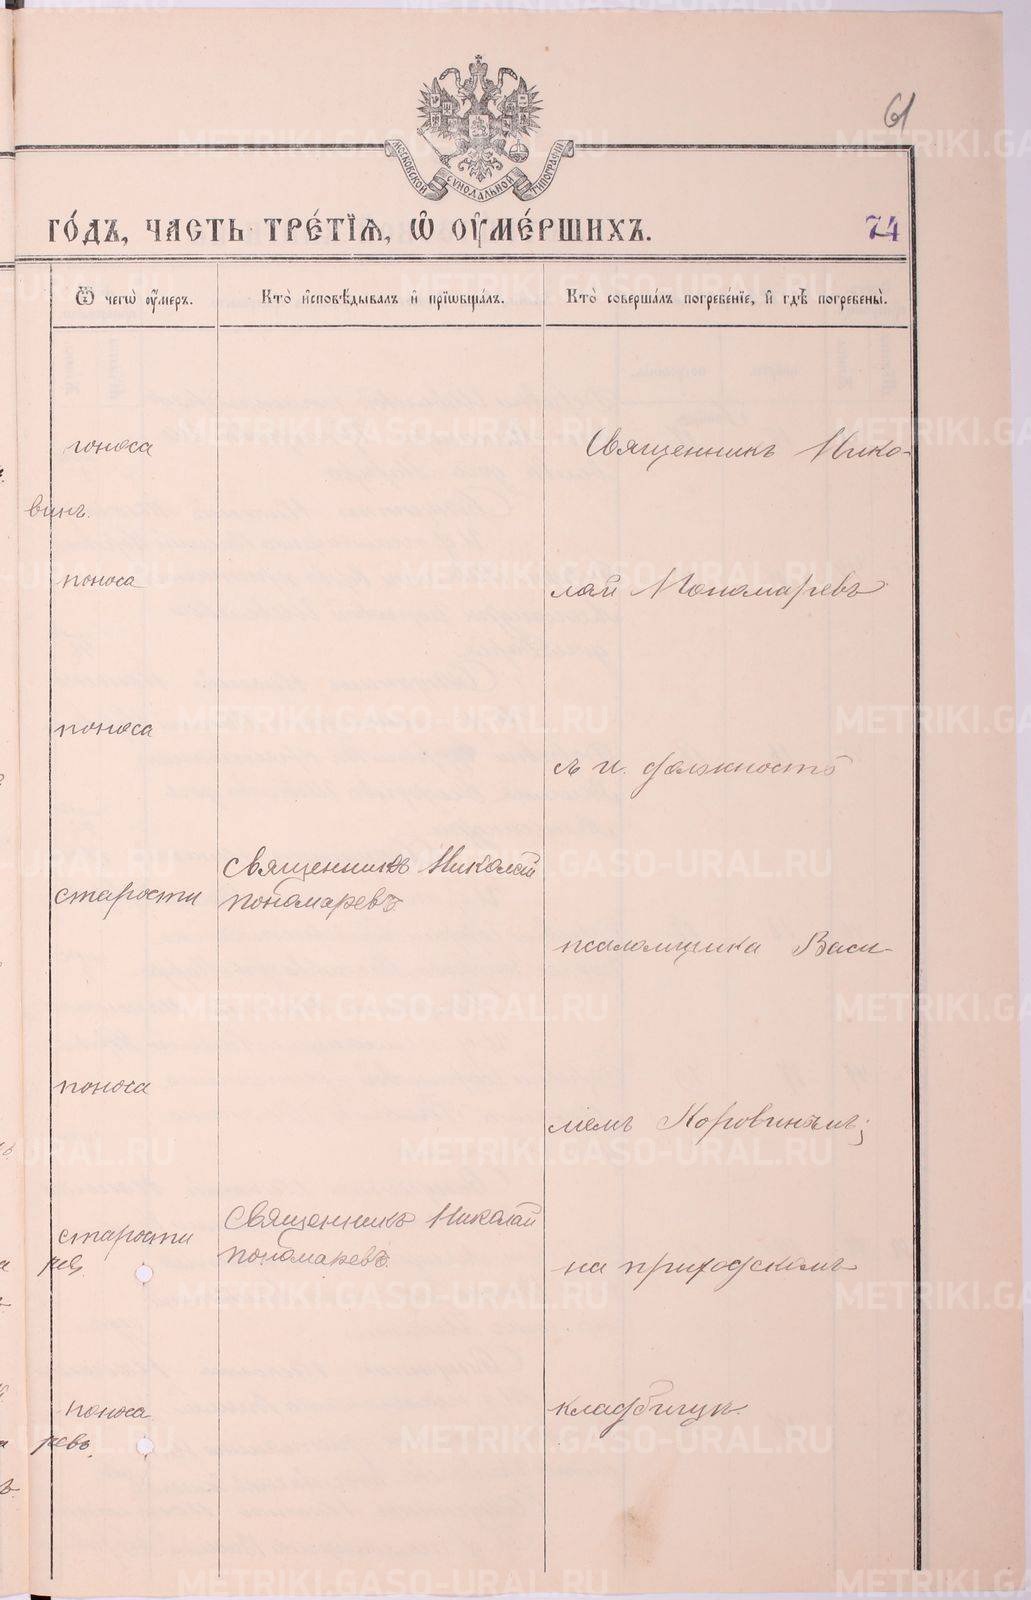 61
МОСКОВСКОЙ СѴНОДАЛЬНОЙ ТИПОГРАФІИ
ГО́ДЪ, ЧАСТЬ ТРЕ́ТЇѦ, Ѡ҆ ОУ҆МЕ́РШИХЪ.
74
Ѿ чегѡ̀ оу҆́меръ.
Кто̀ и҆сповѣ́дывалъ и҆ прїѡбща́лъ.
Кто̀ соверша́лъ погребе́нїе, и҆ гдѣ̀ погребены̀.
поноса
Священникъ Нико-
винъ.
поноса
лай Пономаревъ
поноса
съ и. должность
старости
Священникъ Николай
Пономаревъ
псаломщика Васи-
поноса
ліемъ Коровинымъ;
старости
Священникъ Николай
Пономаревъ.
рев.
на приходскомъ
поноса
кладбищѣ.
ревъ.
METRIKI.GASO-URAL.RU